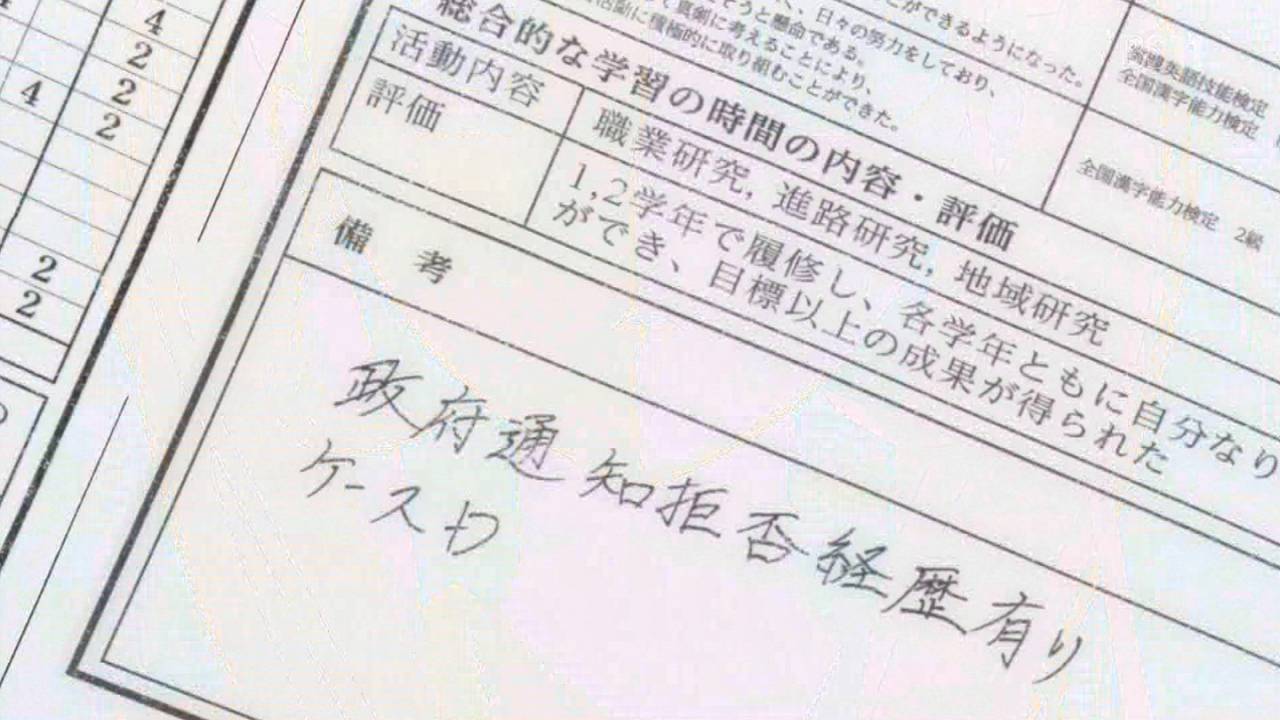 4
2
4 2
2
2
2
ができるようになった。
、日々の努力をしており、
そうと懸命である。
真剣に考えることにより、
活動に積極的に取り組むことができた。
英語技能検定
全国漢字能力検定
全国漢字能力検定 2級
総合的な学習の時間の内容・評価
活動内容 職業研究, 進路研究, 地域研究
評価 1,2学年で履修し、各学年ともに自分なり
ができ、目標以上の成果が得られた
備 考
政府通知拒否経歴有り
ケース